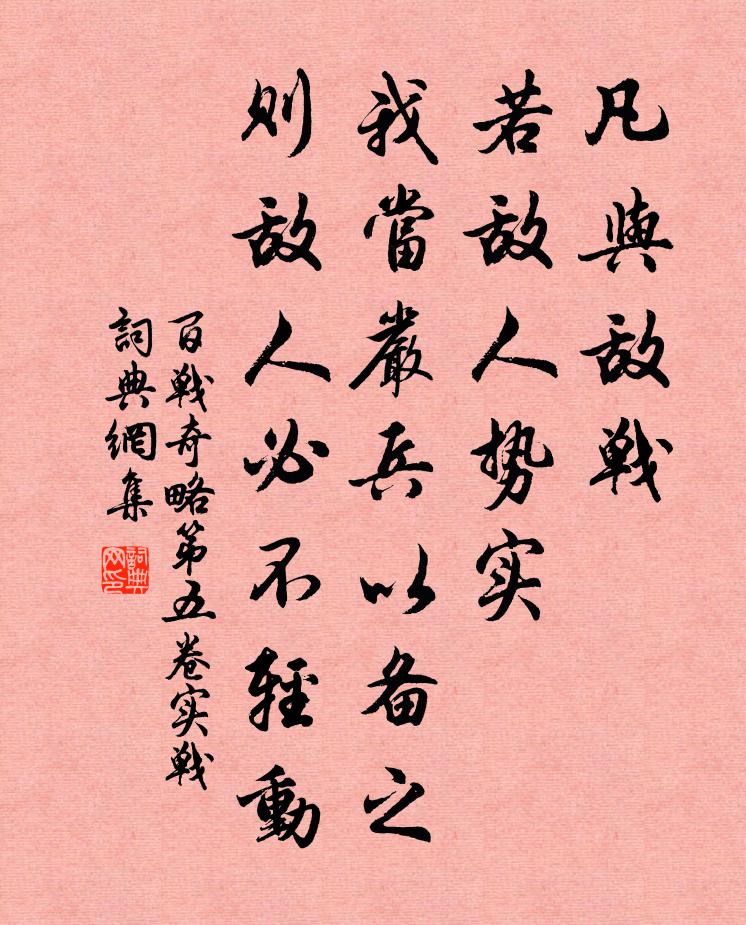 凡與敌戰
若敌人势实
我當嚴兵以备之
则敌人必不輕動
百戰奇略第五卷实戰
詞典網集
詞典网印